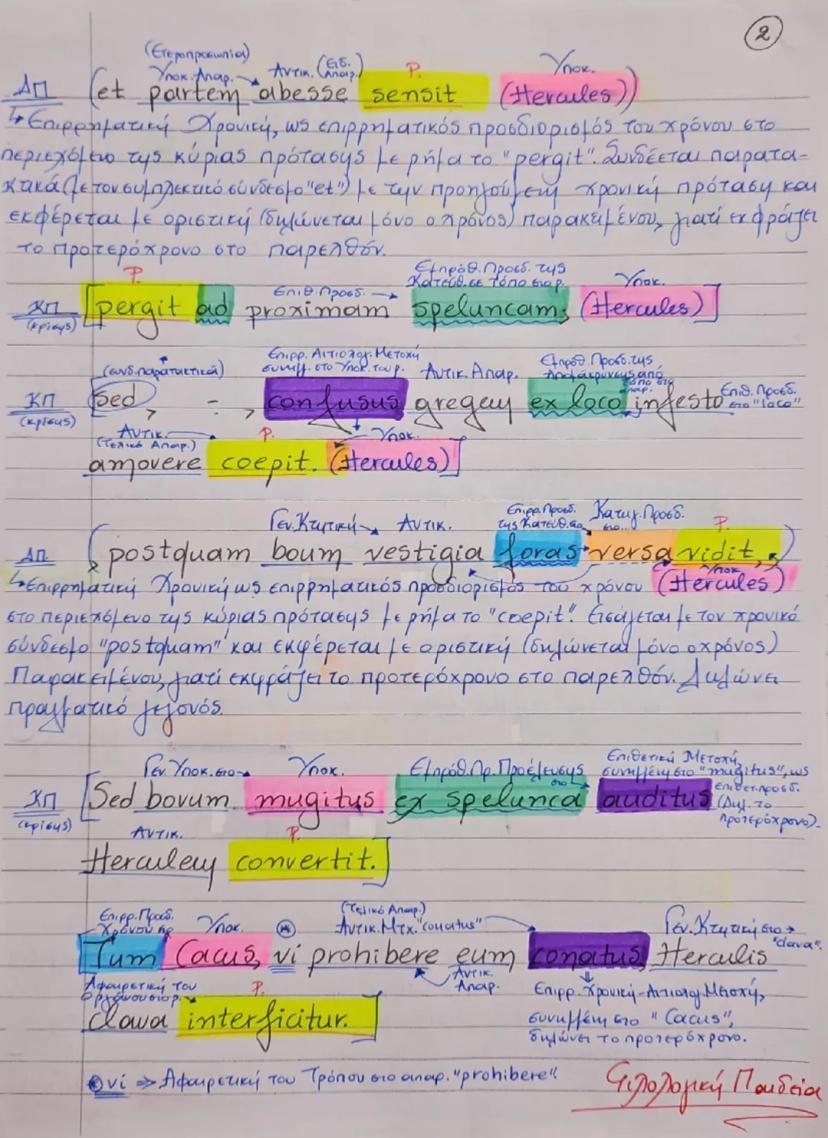 2
(Ετεροπροσωπία)
Υποκ. Απαρ. → Αντικ. (Ειδ. Απαρ.) Ρ. Υποκ.
ΔΠ (et partem abesse sensit (Hercules))
↳ Επιρρηματική Χρονική, ως επιρρηματικός προσδιορισμός του χρόνου στο
περιεχόμενο της κύριας πρότασης με ρήμα το "pergit". Συνδέεται παρατα-
κτικά (με τον συμπλεκτικό σύνδεσμο "et") με την προηγούμενη χρονική πρόταση και
εκφέρεται με οριστική (δηλώνεται μόνο ο χρόνος) παρακειμένου, γιατί εκφράζει
το προτερόχρονο στο παρελθόν.
Ρ. Επιθ. Προσδ. → Εμπρόθ. Προσδ. της Υποκ.
Κατεύθ. σε τόπο στο ρ.
ΚΠ [pergit ad proximam speluncam, (Hercules)]
(κρίσης)
(συνδ. παρατακτικά) Επιρρ. Αιτιολογ. Μετοχή Αντικ. Απαρ. Εμπρόθ. Προσδ. της
συνημμ. στο Υποκ. του ρ. απομάκρυνσης από
τόπο στο απαρ.
ΚΠ [Sed, - : -, confusus gregem ex loco infesto Επιθ. Προσδ.
(κρίσης) στο "loco"
Αντικ. Ρ. Υποκ.
(Τελικό Απαρ.)
amovere coepit. (Hercules)]
Γεν. Κτητική → Αντικ. Επιρρ. Προσδ. Κατηγ. Προσδ. Ρ.
της Κατεύθ. στο στο...
ΔΠ (, postquam boum vestigia foras versa vidit, )
Υποκ.
↳ Επιρρηματική Χρονική ως επιρρηματικός προσδιορισμός του χρόνου (Hercules)
στο περιεχόμενο της κύριας πρότασης με ρήμα το "coepit". Εισάγεται με τον χρονικό
σύνδεσμο "postquam" και εκφέρεται με οριστική (δηλώνεται μόνο ο χρόνος)
Παρακειμένου, γιατί εκφράζει το προτερόχρονο στο παρελθόν. Δηλώνει
πραγματικό γεγονός.
Γεν. Υποκ. στο → Υποκ. Εμπρόθ. Πρ. Προέλευσης στο Επιθετική Μετοχή,
συνημμένη στο "mugitus", ως
ΚΠ [Sed bovum mugitus ex spelunca auditus επιθετ. προσδ.
(κρίσης) (Δηλ. το
προτερόχρονο).
Αντικ. Ρ.
Herculem convertit.]
Επιρρ. Προσδ. Υποκ. (Τελικό Απαρ.) Γεν. Κτητική στο →
Χρόνου στο ρ. Αντικ. Μτχ. "conatus" "clava".
Tum Cacus, vi prohibere eum conatus, Herculis
Αφαιρετική του Αντικ. ↓
οργάνου στο ρ. Ρ. Απαρ. Επιρρ. Χρονική-Αιτιολογ. Μετοχή,
clava interficitur.] συνημμένη στο "Cacus",
δηλώνει το προτερόχρονο.
vi ⇒ Αφαιρετική του Τρόπου στο απαρ. "prohibere".
Φιλολογική Παιδεία